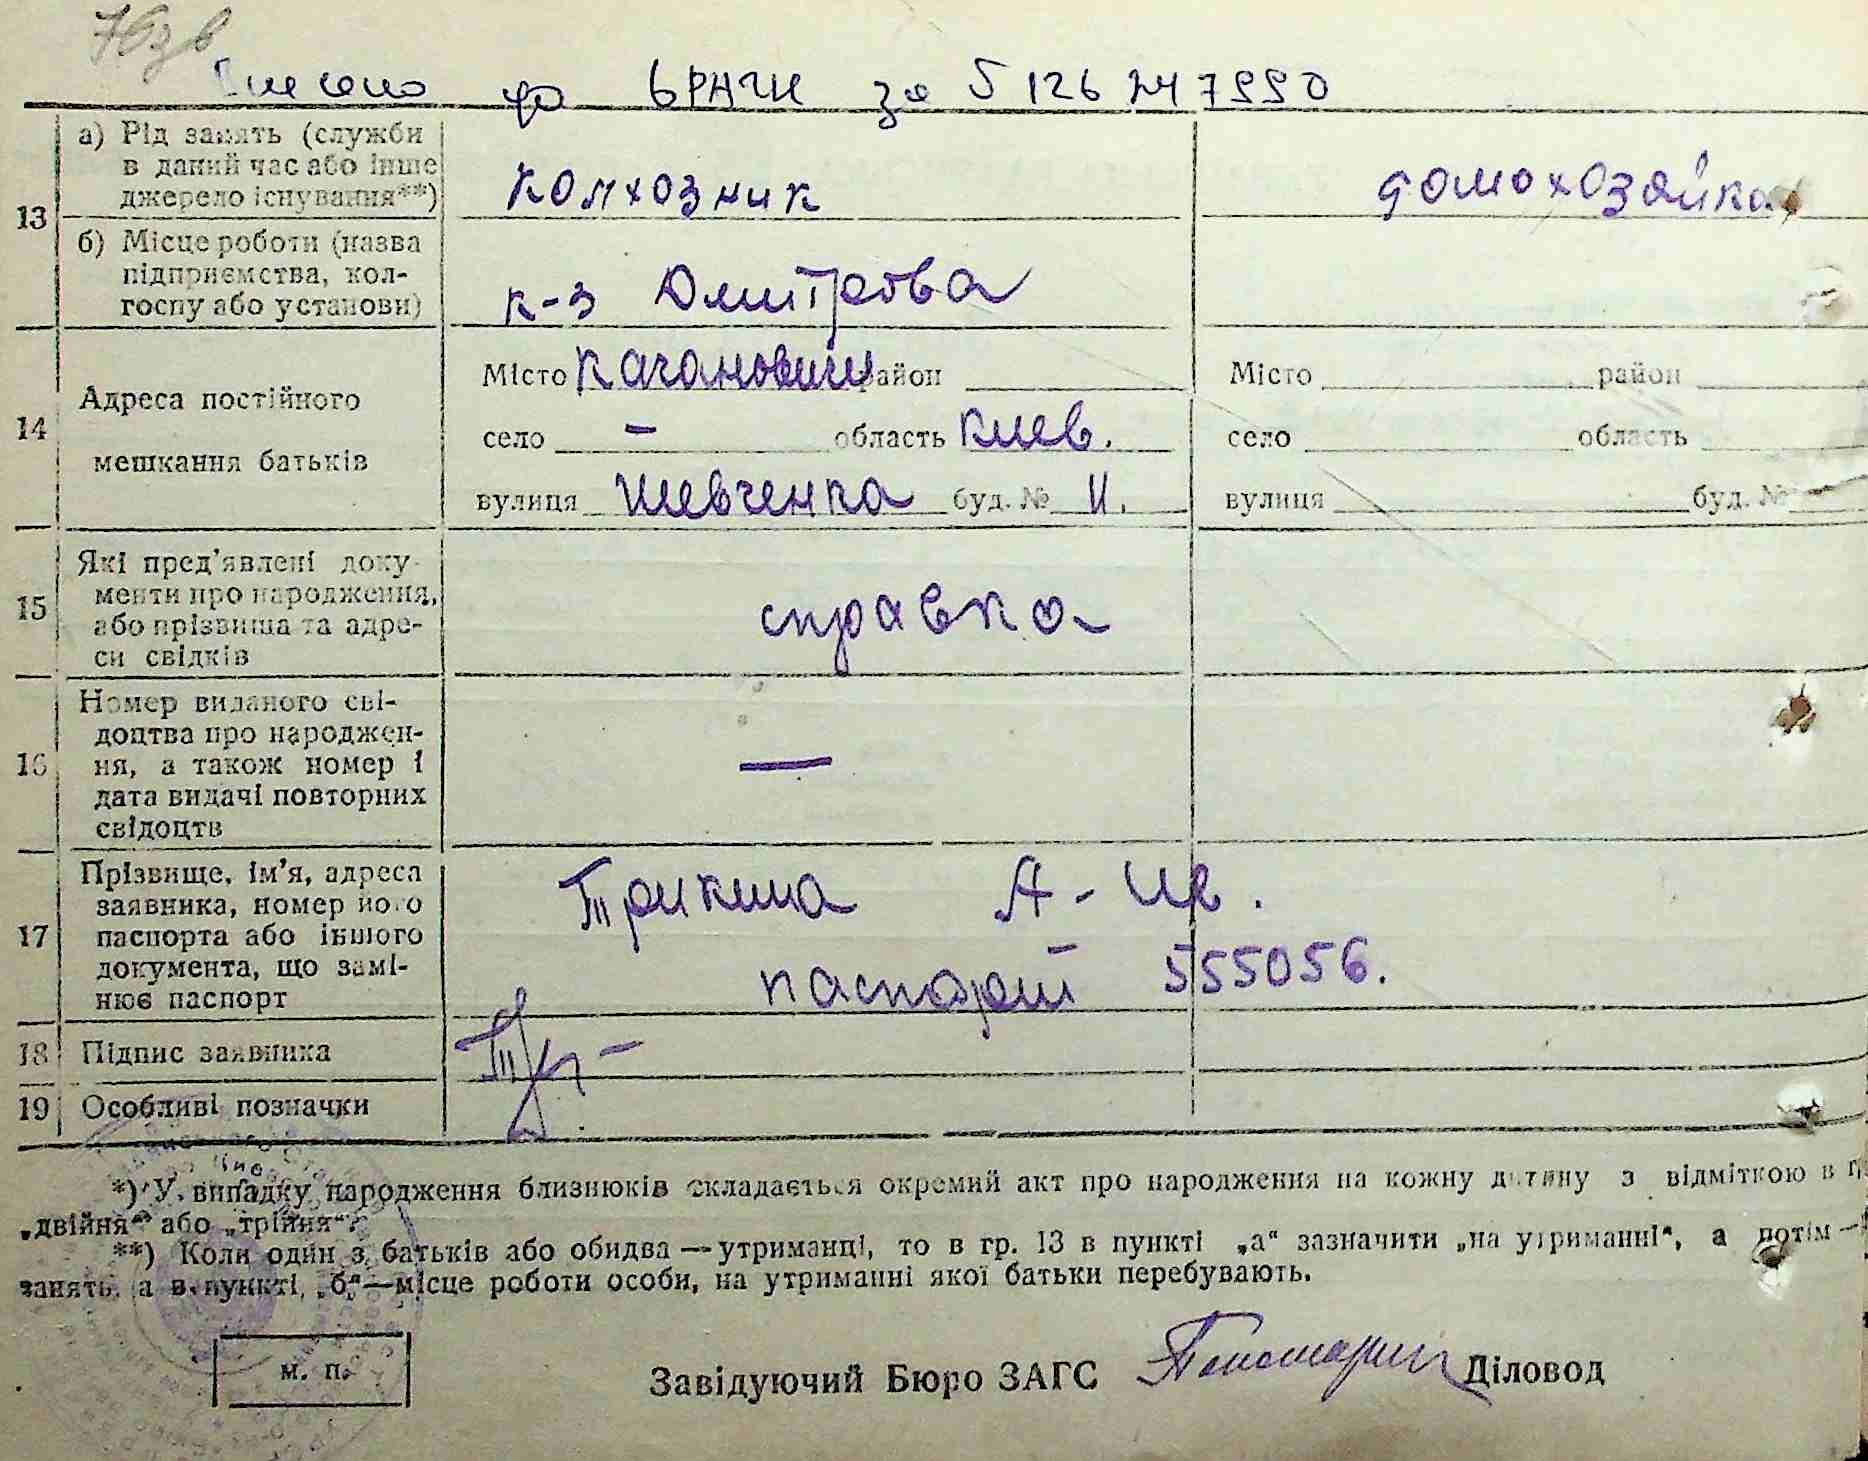 до ДРАЦС за 5126247990
а) Рід занять (служби
в даний час або інше
джерело існування**)
колхозник
домохозяйка
13
б) Місце роботи (назва
підприємства, кол-
госпу або установи)
к-з
14
Адреса постійного
мешкання батьків
Місто Каганович район
Місто район
село - область Киев.
село область
вулиця Шевченка буд. № 11.
вулиця буд. №
15
Які пред'явлені доку-
менти про народження,
або прізвища та адре-
си свідків
справка
16
Номер виданого сві-
доцтва про народжен-
ня, а також номер і
дата видачі повторних
свідоцтв
—
17
Прізвище, ім'я, адреса
заявника, номер його
паспорта або іншого
документа, що замі-
нює паспорт
Трикиша А-
паспорт 555056.
18 Підпис заявника
19 Особливі позначки
*) У випадку народження близнюків складається окремий акт про народження на кожну дитину з відміткою в
„двійня“ або „трійня“.
**) Коли один з батьків або обидва — утриманці, то в гр. 13 в пункті „а“ зазначити „на утриманні“, а потім —
занять, а в пункті „б“ — місце роботи особи, на утриманні якої батьки перебувають.
м. п.
Завідуючий Бюро ЗАГС Діловод